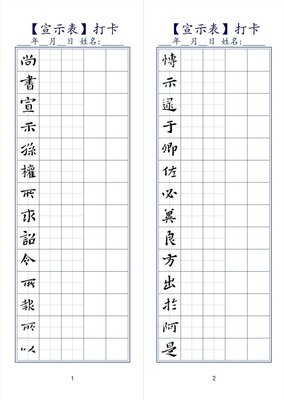 【宣示表】打卡
__年__月__日 姓名:____
尚
書
宣
示
孫
權
所
求
詔
令
所
報
所
以
1
【宣示表】打卡
__年__月__日 姓名:____
博
示
逮
于
卿
佐
必
冀
良
方
出
於
阿
是
2